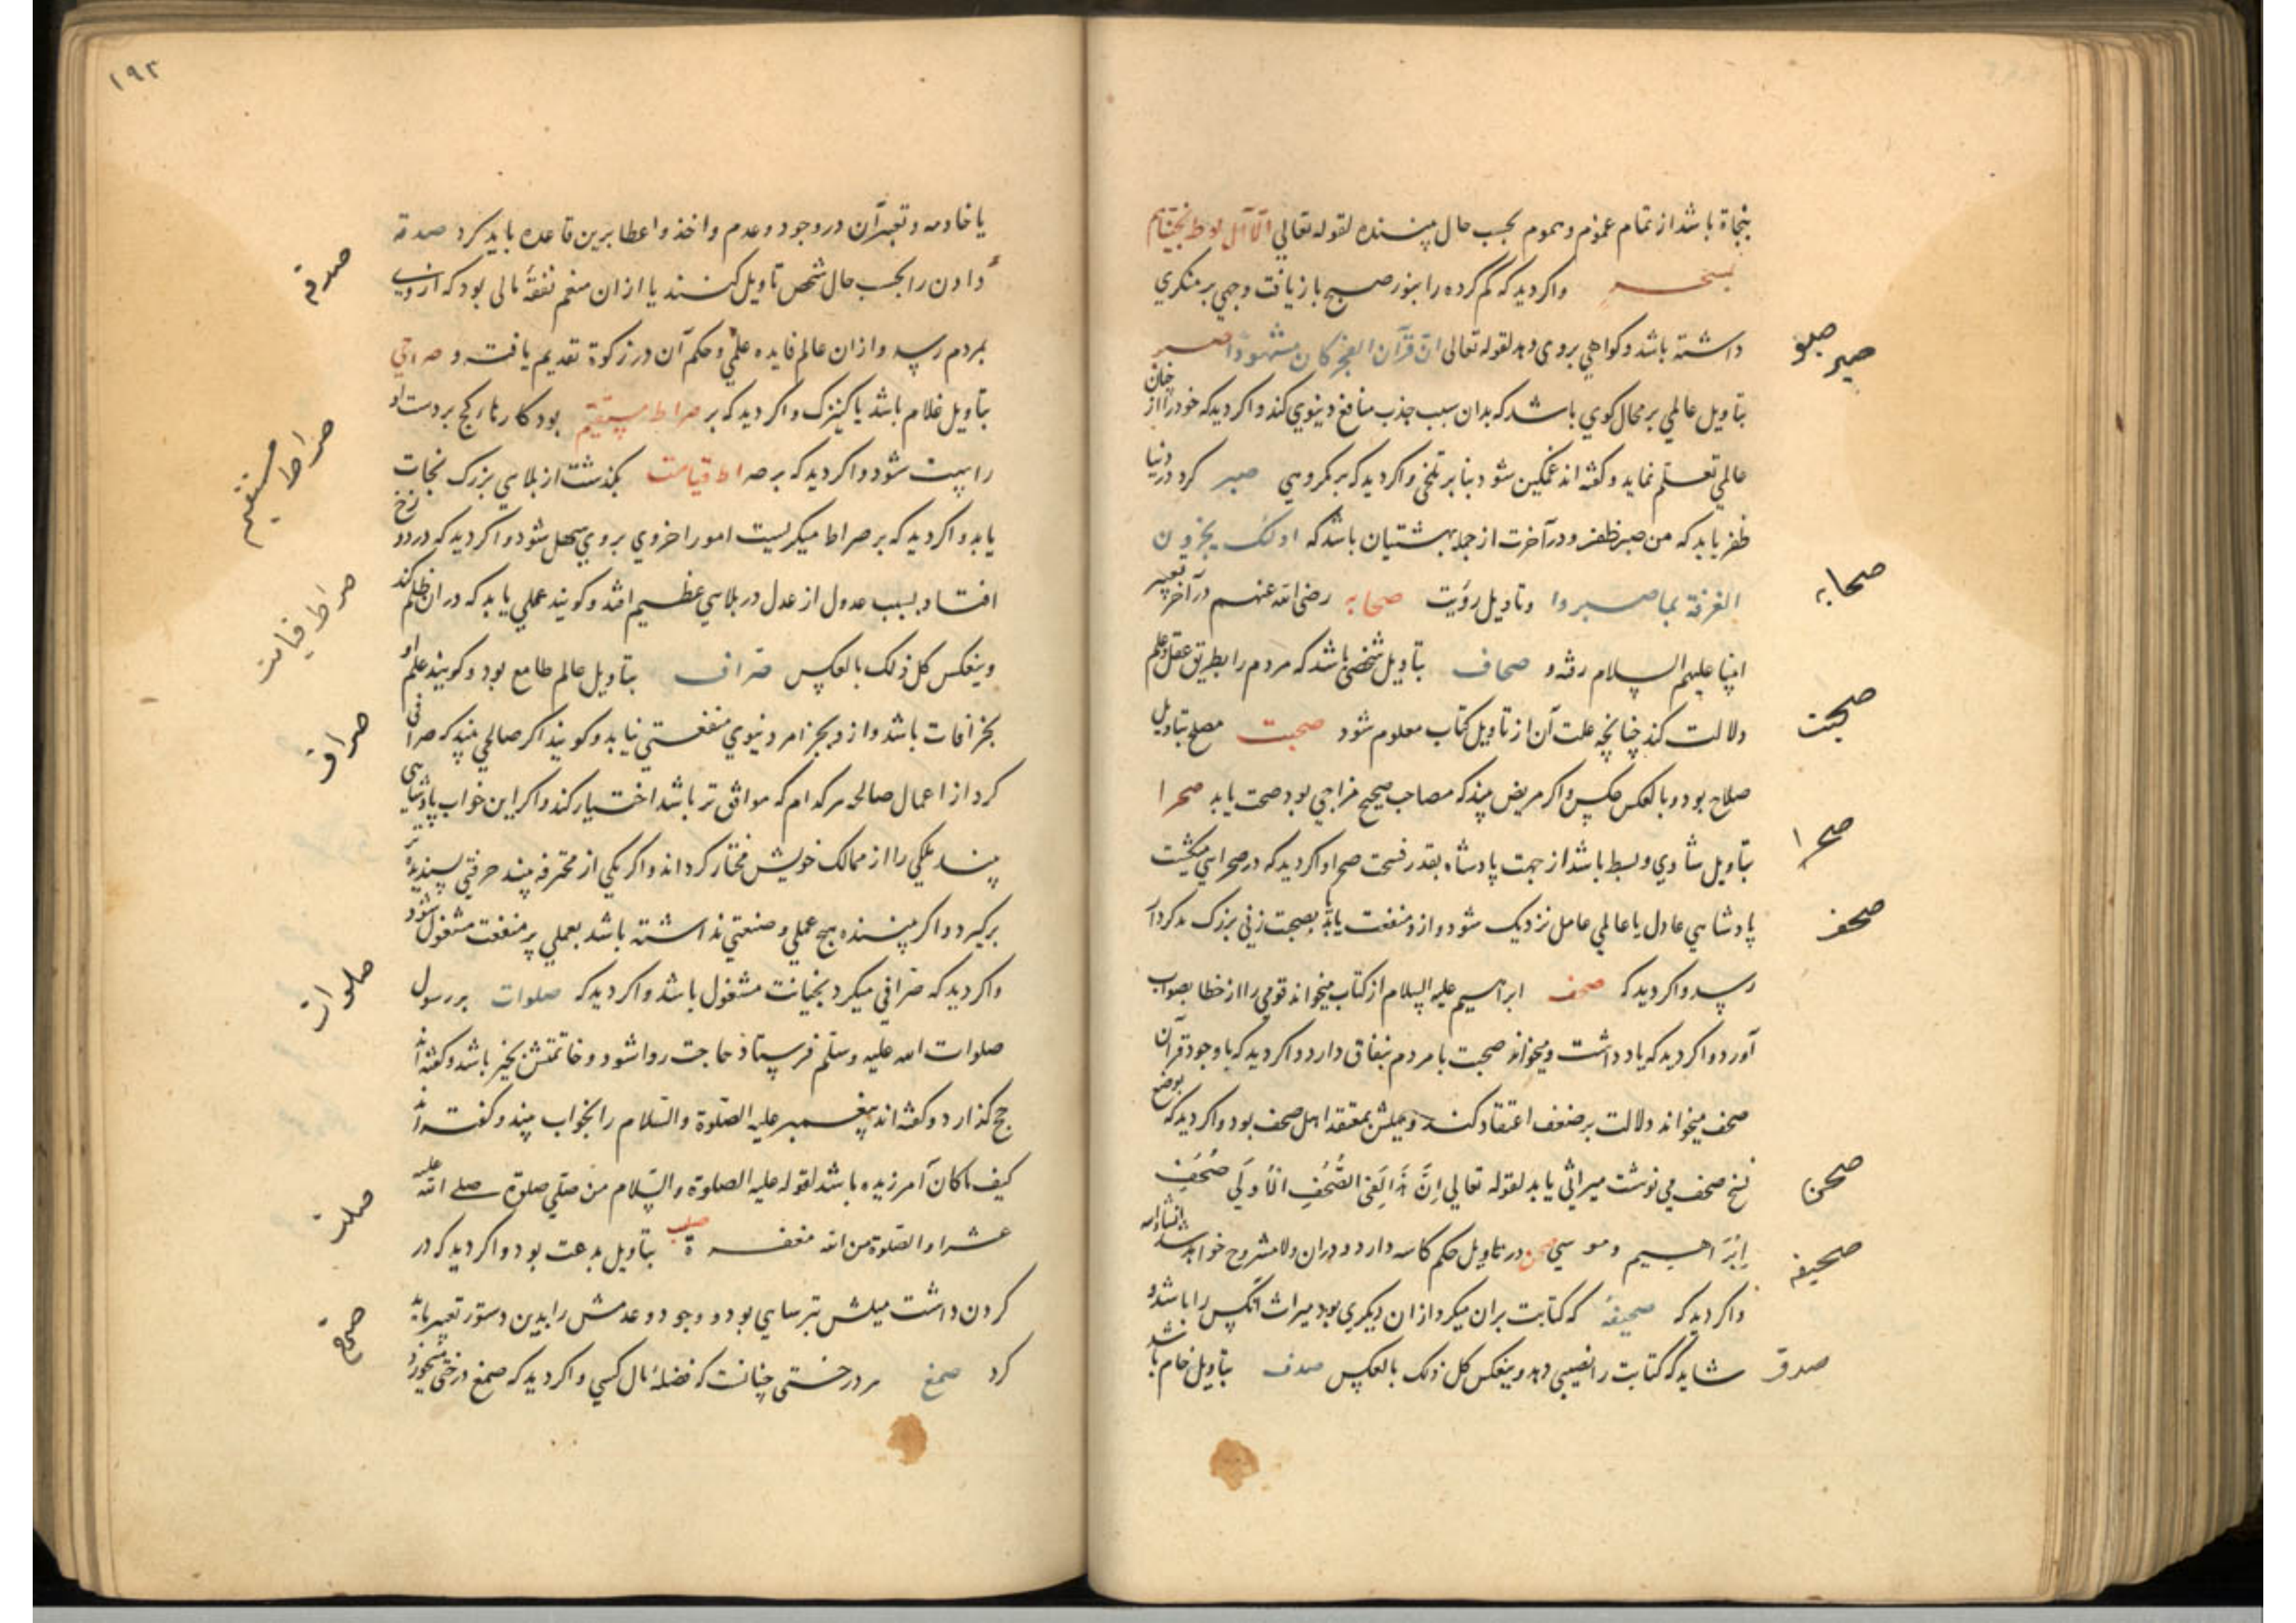 بنجاة باشد از تمام غموم و هموم بحسب حال بیننده لقوله تعالی الا آل لوط نجیناهم
بسحر واکر دید که کم کرده را بنور صبح باز یافت وجهی بر منکری
داشته باشد و کواهی بر وی دهد لقوله تعالی ان قرآن الفجر کان مشهودا صبر
صبر صبو
بتاویل عالمی بر محال کوی باشد که بدان سبب جذب منافع دنیوی کند واکر دید که خود را از چنان
عالمی تعلم نماید و کفته اند غمکین شود بنا بر تلخی واکر دید که بر مکروهی صبر کرد در دنیا
ظفر یابد که من صبر ظفر و در آخرت از جمله بهشتیان باشد که اولئک یجزون
الغرفة بما صبروا و تاویل رؤیت صحابه رضی الله عنهم در آخر تعبیر
صحابه
انبیا علیهم السلام رفته و صحاف بتاویل شخصی باشد که مردم را بطریق عقل و علم
دلالت کند چنانچه علت آن از تاویل کتاب معلوم شود صحبت مصلح بتاویل
صحبت
صلاح بود و بالعکس عکس واکر مریض بیند که مصاحب صحیح مزاجی بود صحت یابد صحرا
بتاویل شادی و بسط باشد از جهت پادشاه بقدر فسحت صحرا واکر دید که در صحرایی میکشت
صحرا
پادشاهی عادل یا عالمی عامل نزدیک شود و ازو منفعت یابد یا بصحبت زنی بزرک بدکردار
صحف
رسد واکر دید که صحف ابراهیم علیه السلام از کتاب میخواند قومی را از خطا بصواب
آورد واکر دید که یاد داشت و میخواند صحبت با مردم بنفاق دارد واکر دید که با وجود قرآن
صحف میخواند دلالت بر ضعف اعتقاد کند و میلش بمعتقد اهل صحف بود واکر دید که
نسخ صحف می نوشت میراثی یابد لقوله تعالی اِنَّ هَذَا لَفِی الصُّحُفِ الأُولَی صُحُفِ
صحن
اِبْرَاهیم و موسی صحن در تاویل حکم کاسه دارد و در ان ولا مشروح خواهد شد انشاءالله
صحیفه
واکر دید که صحیفه که کتابت بران میکرد از ان دیکری بود میراث آنکس را باشد و
شاید که کتابت را نصیبی دهد و ینعکس کل ذلک بالعکس صدف بتاویل خام باشد
صدف
۱۹۲
یا خادمه و تعبیر آن در وجود و عدم و اخذ و اعطا برین قاعده باید کرد صدقه
صدقه
دادن را بحسب حال شخص تاویل کنند یا از ان منعم نفقه مالی بود که از وی
بمردم رسد و از ان عالم فایده علمی و حکم آن در زکوة تقدیم یافت و صراحی
بتاویل غلام باشد یا کنیزک واکر دید که بر صراط مستقیم بود کارهای کج بر دست او
صراط مستقیم
راست شود واکر دید که بر صراط قیامت بکذشت از بلایی بزرک نجات
یابد واکر دید که بر صراط میکریست امور اخروی بر وی سهل شود واکر دید که در دوزخ
افتاد بسبب عدول از عدل در بلایی عظیم افتد و کویند عملی یابد که در ان ظلم کند
صراط قیامت
و ینعکس کل ذلک بالعکس صراف بتاویل عالم طامع بود و کویند علم او
بجز آفات باشد و ازو بجز امر دنیوی منفعتی نیابد و کویند اکر صالحی بیند که صرافی
صراف
کرد از اعمال صالحه هر کدام که موافق تر باشد اختیار کند واکر این خواب پادشاهی
بیند ملکی را از ممالک خویش مختار کرداند واکر یکی از محترفه بیند حرفتی پسندیده تر
برکیرد واکر بیننده هیچ عملی و صنعتی نداشته باشد بعملی پر منفعت مشغول شود
واکر دید که صرافی میکرد بخیانت مشغول باشد واکر دید که صلوات بر رسول
صلوات
صلوات الله علیه وسلم فرستاد حاجت روا شود و خاتمتش بخیر باشد و کفته اند
حج کذارد و کفته اند پیغمبر علیه الصلوة والسلام را بخواب بیند و کفته اند
کیف ما کان آمرزیده باشد لقوله علیه الصلوة والسلام من صلی صلوة صلی الله علیه
عشرا و الصلوة من الله مغفرة صلب بتاویل بدعت بود واکر دید که در
صلب
کردن داشت میلش بترسایی بود و وجود و عدمش را بدین دستور تعبیر باید
کرد صمغ هر درختی چنانست که فضله مال کسی واکر دید که صمغ درختی میخورد
صمغ